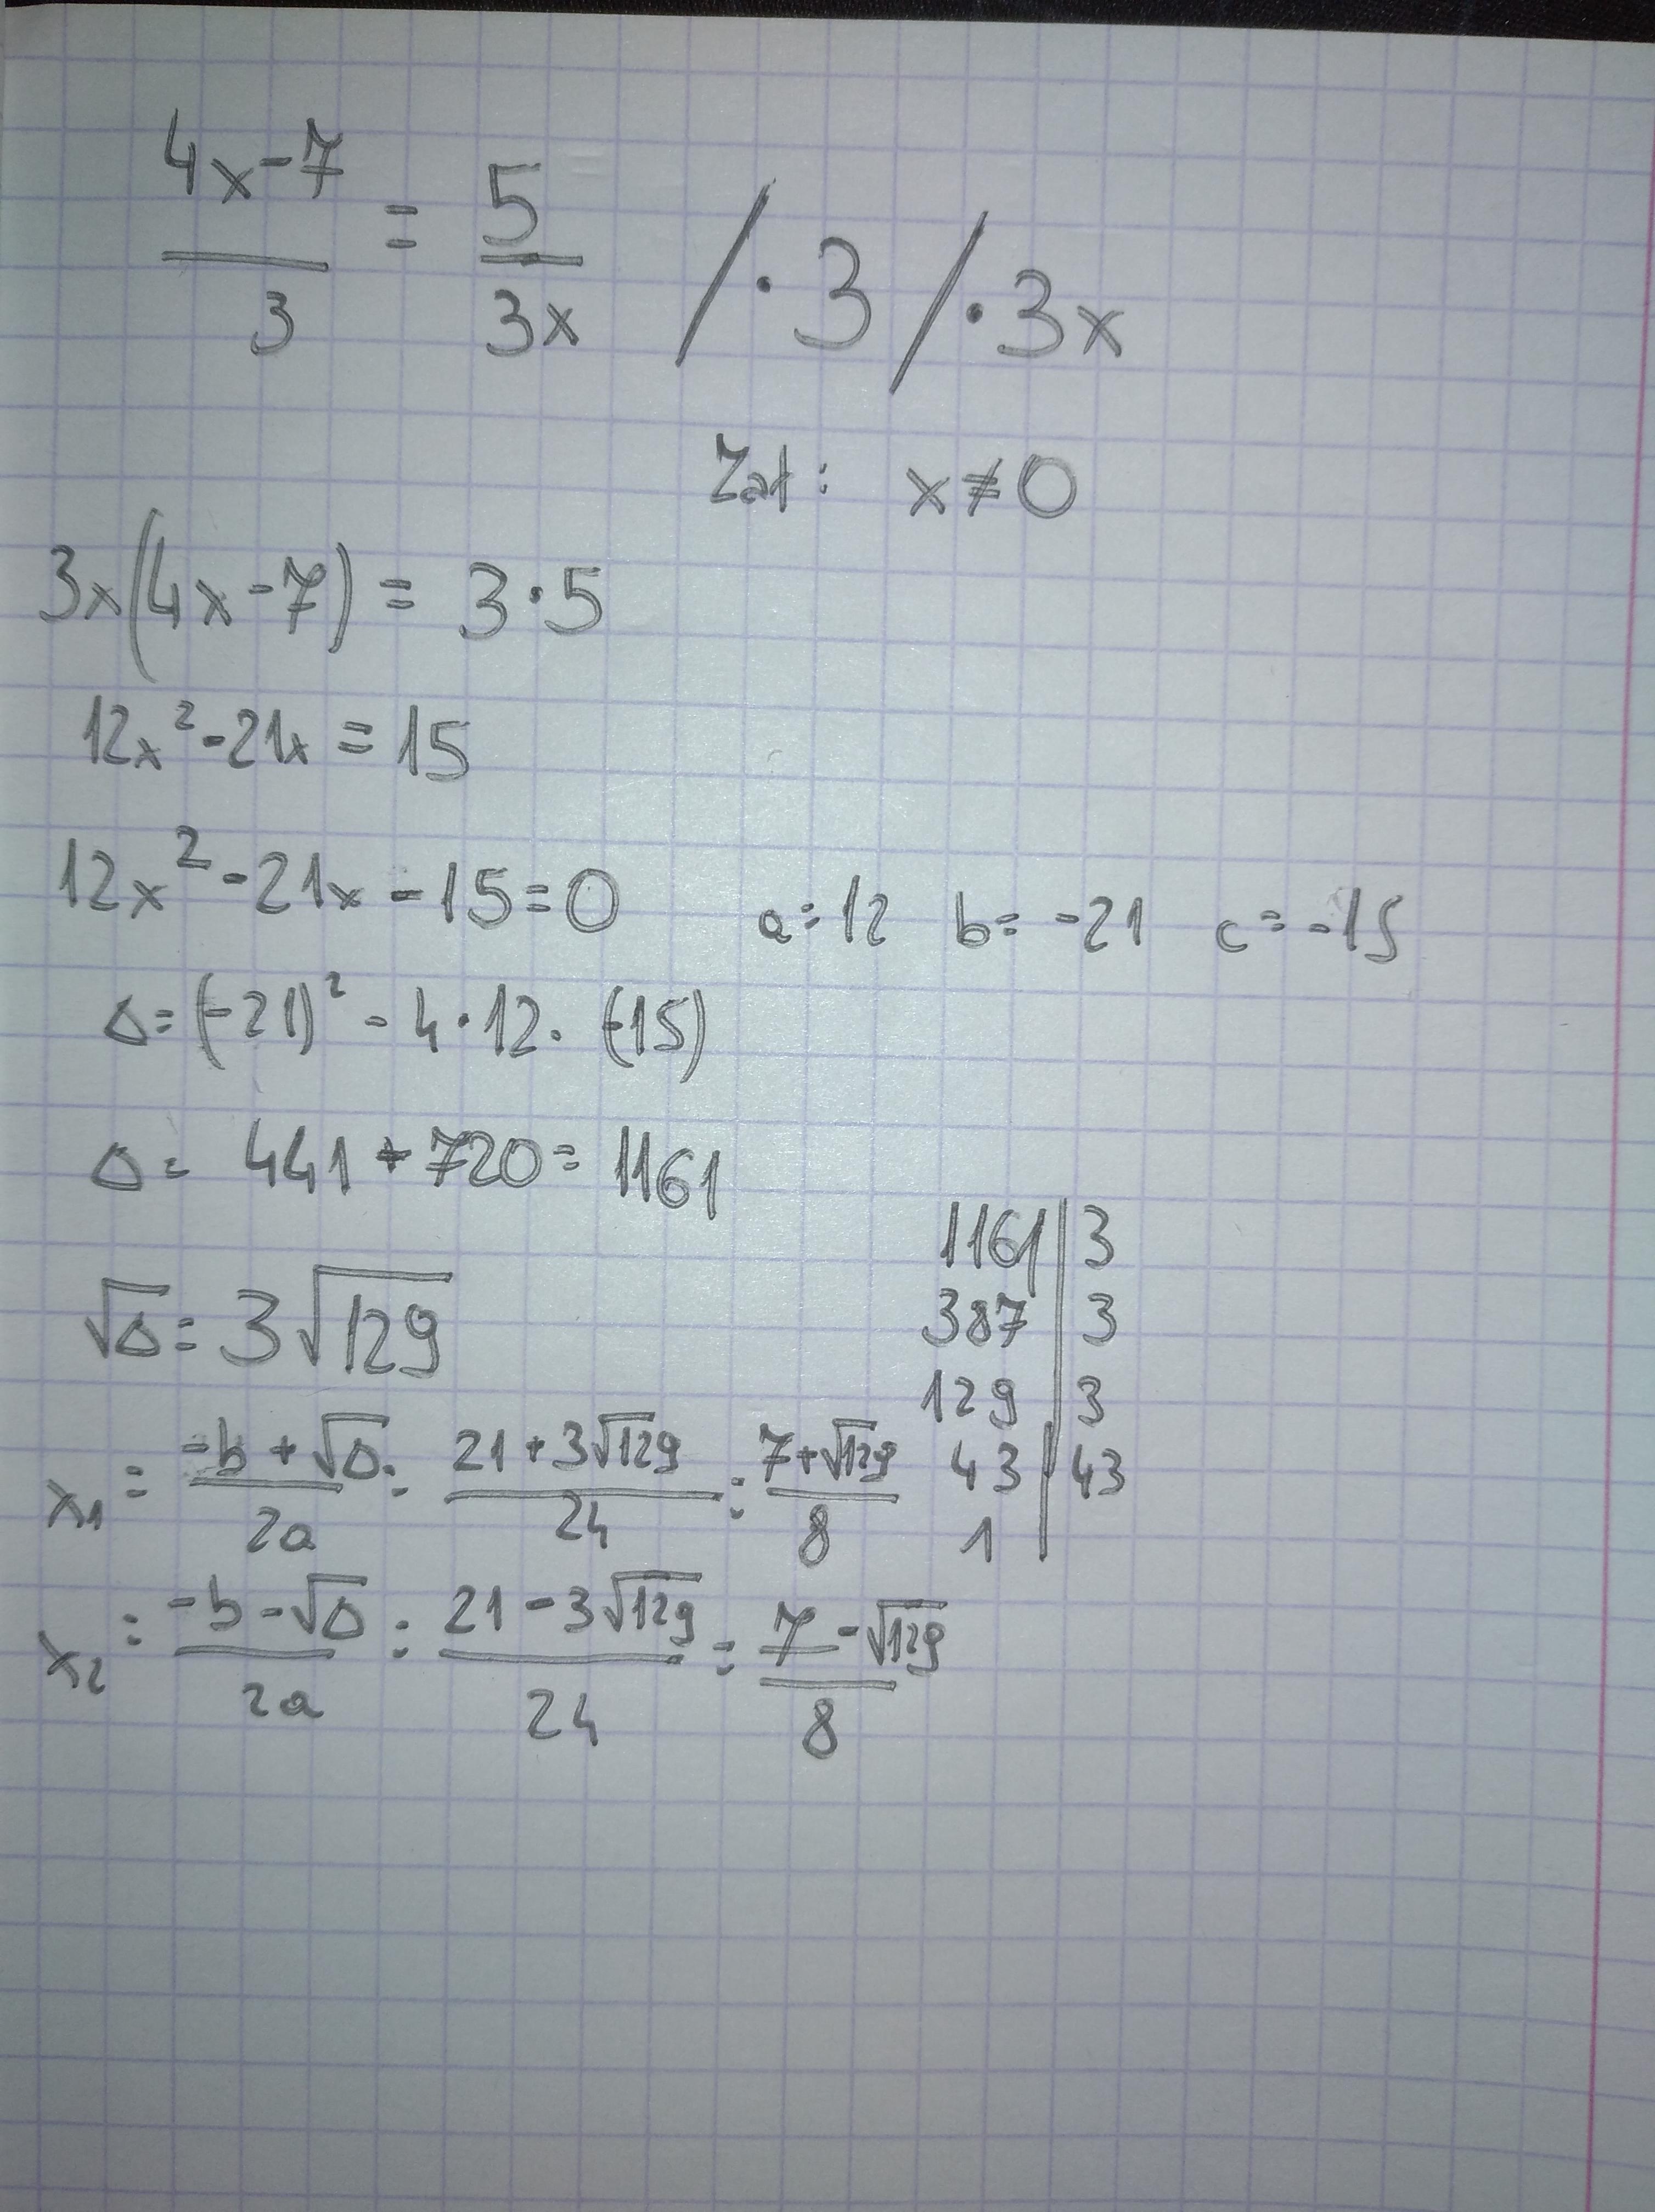 4x-7/3 = 5/3x /·3 /·3x
Zał: x≠0
3x(4x-7) = 3·5
12x²-21x = 15
12x²-21x-15=0 a=12 b=-21 c=-15
Δ=(-21)²-4·12·(-15)
Δ= 441+720=1161
√Δ= 3√129
1161|3
387|3
129|3
43|43
1|
x₁= -b+√Δ/2a = 21+3√129/24 = 7+√129/8
x₂= -b-√Δ/2a = 21-3√129/24 = 7-√129/8